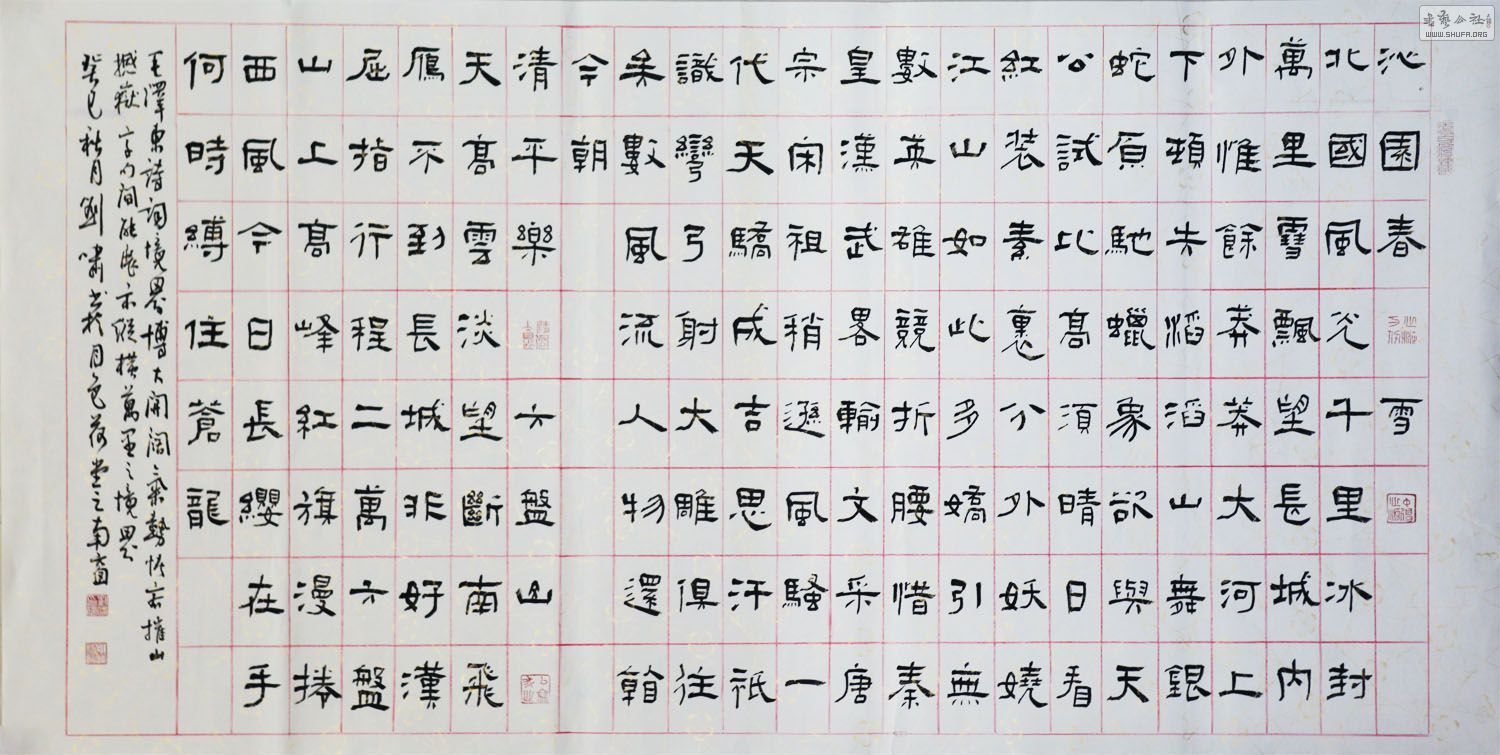 沁園春 雪
北國風光千里冰封
萬里雪飄望長城內
外惟餘莽莽大河上
下頓失滔滔山舞銀
蛇原馳蠟象欲與天
公試比高須晴日看
紅裝素裹分外妖嬈
江山如此多嬌引無
數英雄競折腰惜秦
皇漢武畧輸文采唐
宗宋祖稍遜風騷一
代天驕成吉思汗祇
識彎弓射大雕俱往
矣數風流人物還看
今朝
清平樂 六盤山
天高雲淡望斷南飛
鴈不到長城非好漢
屈指行程二萬六盤
山上高峰紅旗漫捲
西風今日長纓在手
何時縛住蒼龍
毛澤東詩詞境界博大開闊氣勢恢宏摧山
撼嶽字句間能盡示縱橫萬里之境界
癸巳秋月劉嘯書於月色荷塘之南窗
書藝公社
WWW.SHUFA.ORG